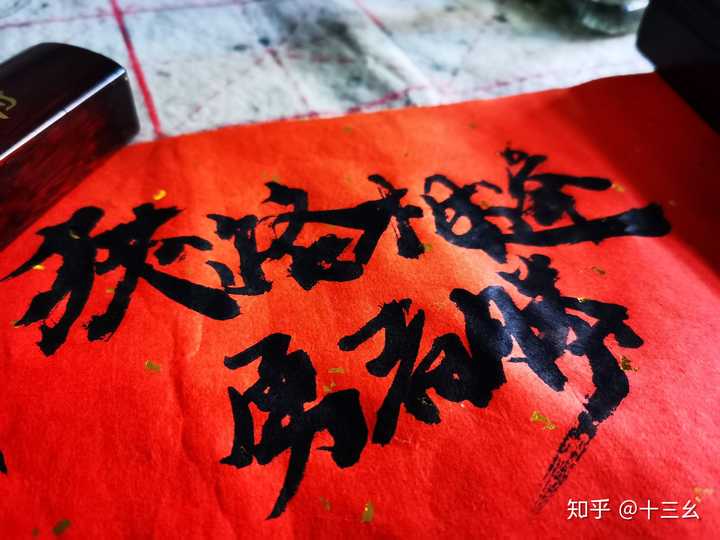 狭路相逢
勇者胜
知乎 @十三幺